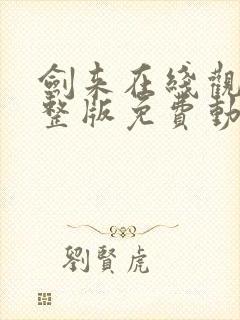 劍來在綫觀
整版免費動
劉賢虎